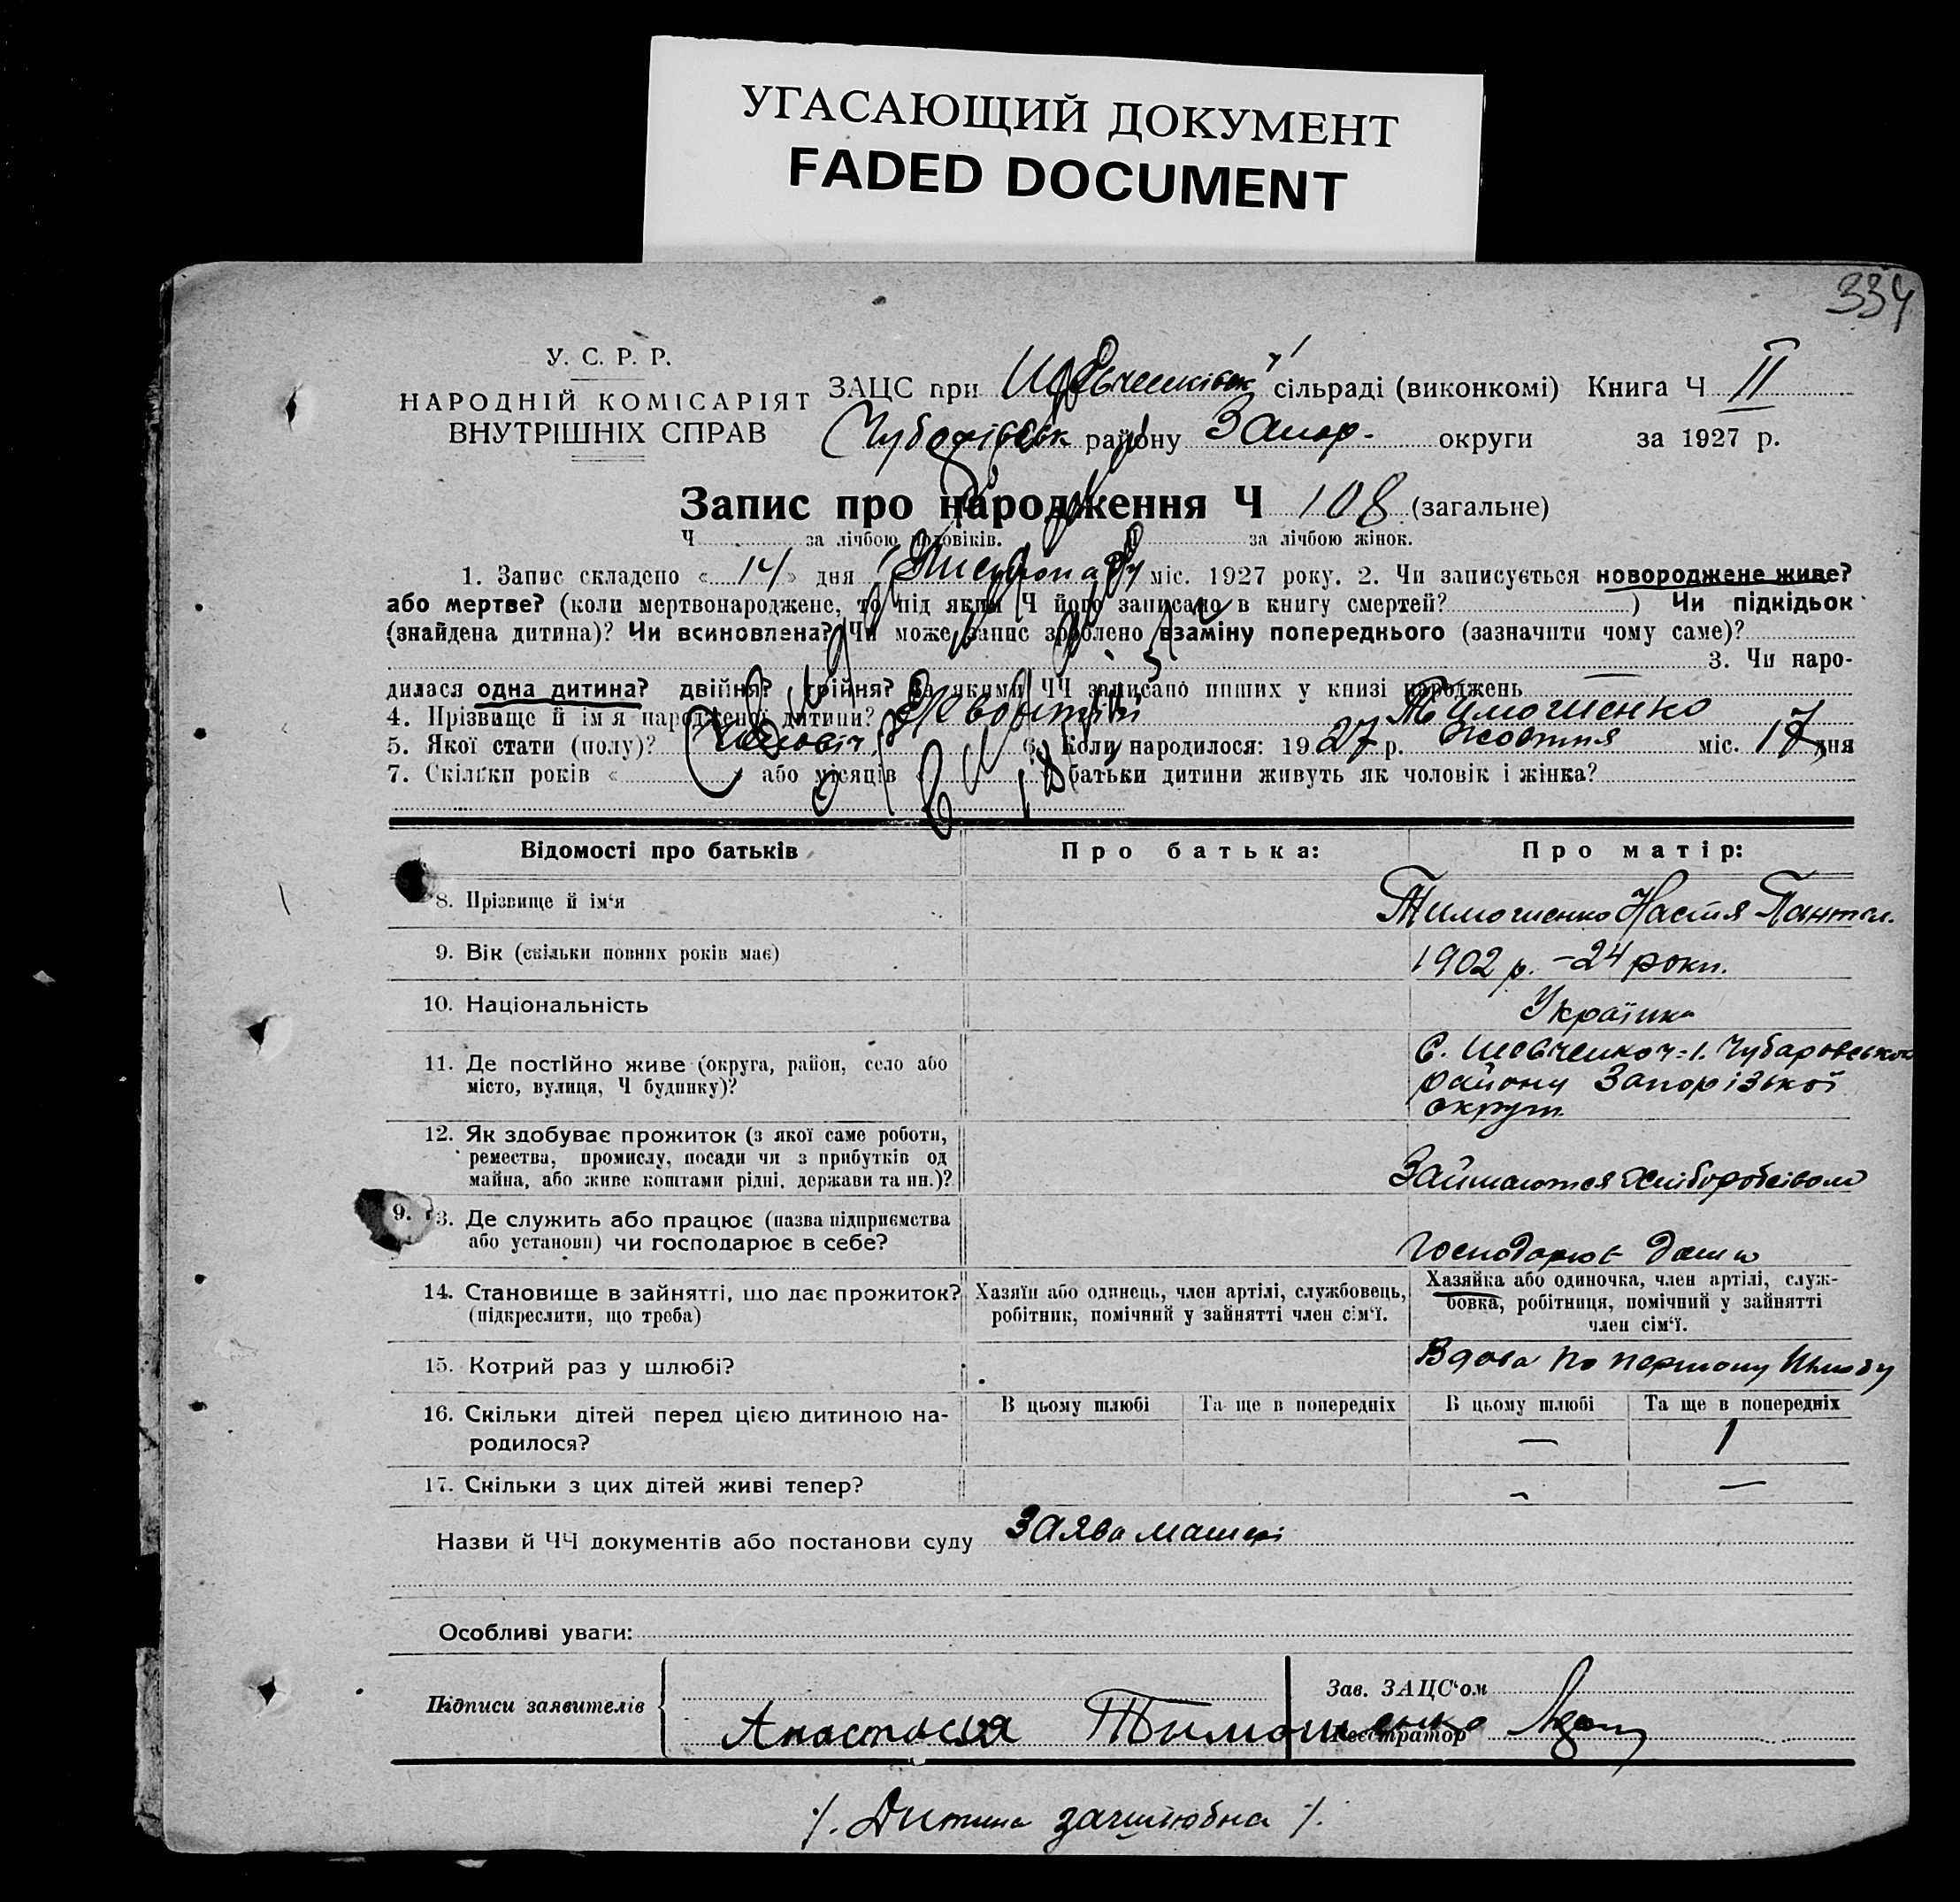 УГАСАЮЩИЙ ДОКУМЕНТ
FADED DOCUMENT
334
У. С. Р. Р.
НАРОДНІЙ КОМІСАРІЯТ
ВНУТРІШНІХ СПРАВ
ЗАЦС при Шевченківськ сільраді (виконкомі) Книга Ч II
Чубарівськ району Запор. округи за 1927 р.
Запис про народження Ч 108 (загальне)
Ч за лічбою чоловіків. Ч за лічбою жінок.
1. Запис складено « 14 » дня Листопаду міс. 1927 року. 2. Чи записується новороджене живе?
або мертве? (коли мертвонароджене, то під яким Ч його записано в книгу смертей? ) Чи підкідьок
(знайдена дитина)? Чи всиновлена? Чи може запис зроблено взаміну попереднього (зазначити чому саме)?
3. Чи наро-
дилася одна дитина? двійня? трійня? За якими ЧЧ записано инших у книзі народжень —
4. Прізвище й ім'я народженої дитини? Тимошенко
5. Якої стати (полу)? Чоловіч. 6. Коли народилося: 1927 р. жовтня міс. 17 дня
7. Скільки років « » або місяців « » батьки дитини живуть як чоловік і жінка?
Відомості про батьків
Про батька:
Про матір:
8. Прізвище й ім'я
Тимошенко Настя Пантел.
9. Вік (скільки повних років має)
1902 р. – 24 роки.
10. Національність
Українка
11. Де постійно живе (округа, район, село або
місто, вулиця, Ч будинку)?
С. Шевченко ч=1. Чубаровського
району Запорізької
округи
12. Як здобуває прожиток (з якої саме роботи,
ремества, промислу, посади чи з прибутків од
майна, або живе коштами рідні, держави та ин.)?
Займаются хліборобством
9. 13. Де служить або працює (назва підприємства
або установи) чи господарює в себе?
Господарює дома
14. Становище в зайнятті, що дає прожиток?
(підкреслити, що треба)
Хазяїн або одинець, член артілі, службовець,
робітник, помічний у зайнятті член сім'ї.
Хазяйка або одиночка, член артілі, служ-
бовка, робітниця, помічний у зайнятті
член сім'ї.
15. Котрий раз у шлюбі?
Вдова по першому шлюбу
16. Скільки дітей перед цією дитиною на-
родилося?
В цьому шлюбі
Та ще в попередніх
В цьому шлюбі
Та ще в попередніх
— 1
17. Скільки з цих дітей живі тепер?
– —
Назви й ЧЧ документів або постанови суду Заява матері
Особливі уваги:
Підписи заявителів
Зав. ЗАЦС'ом
Анастасия Тимошенко
Реєстратор
/. Дитина зашлюбна /.